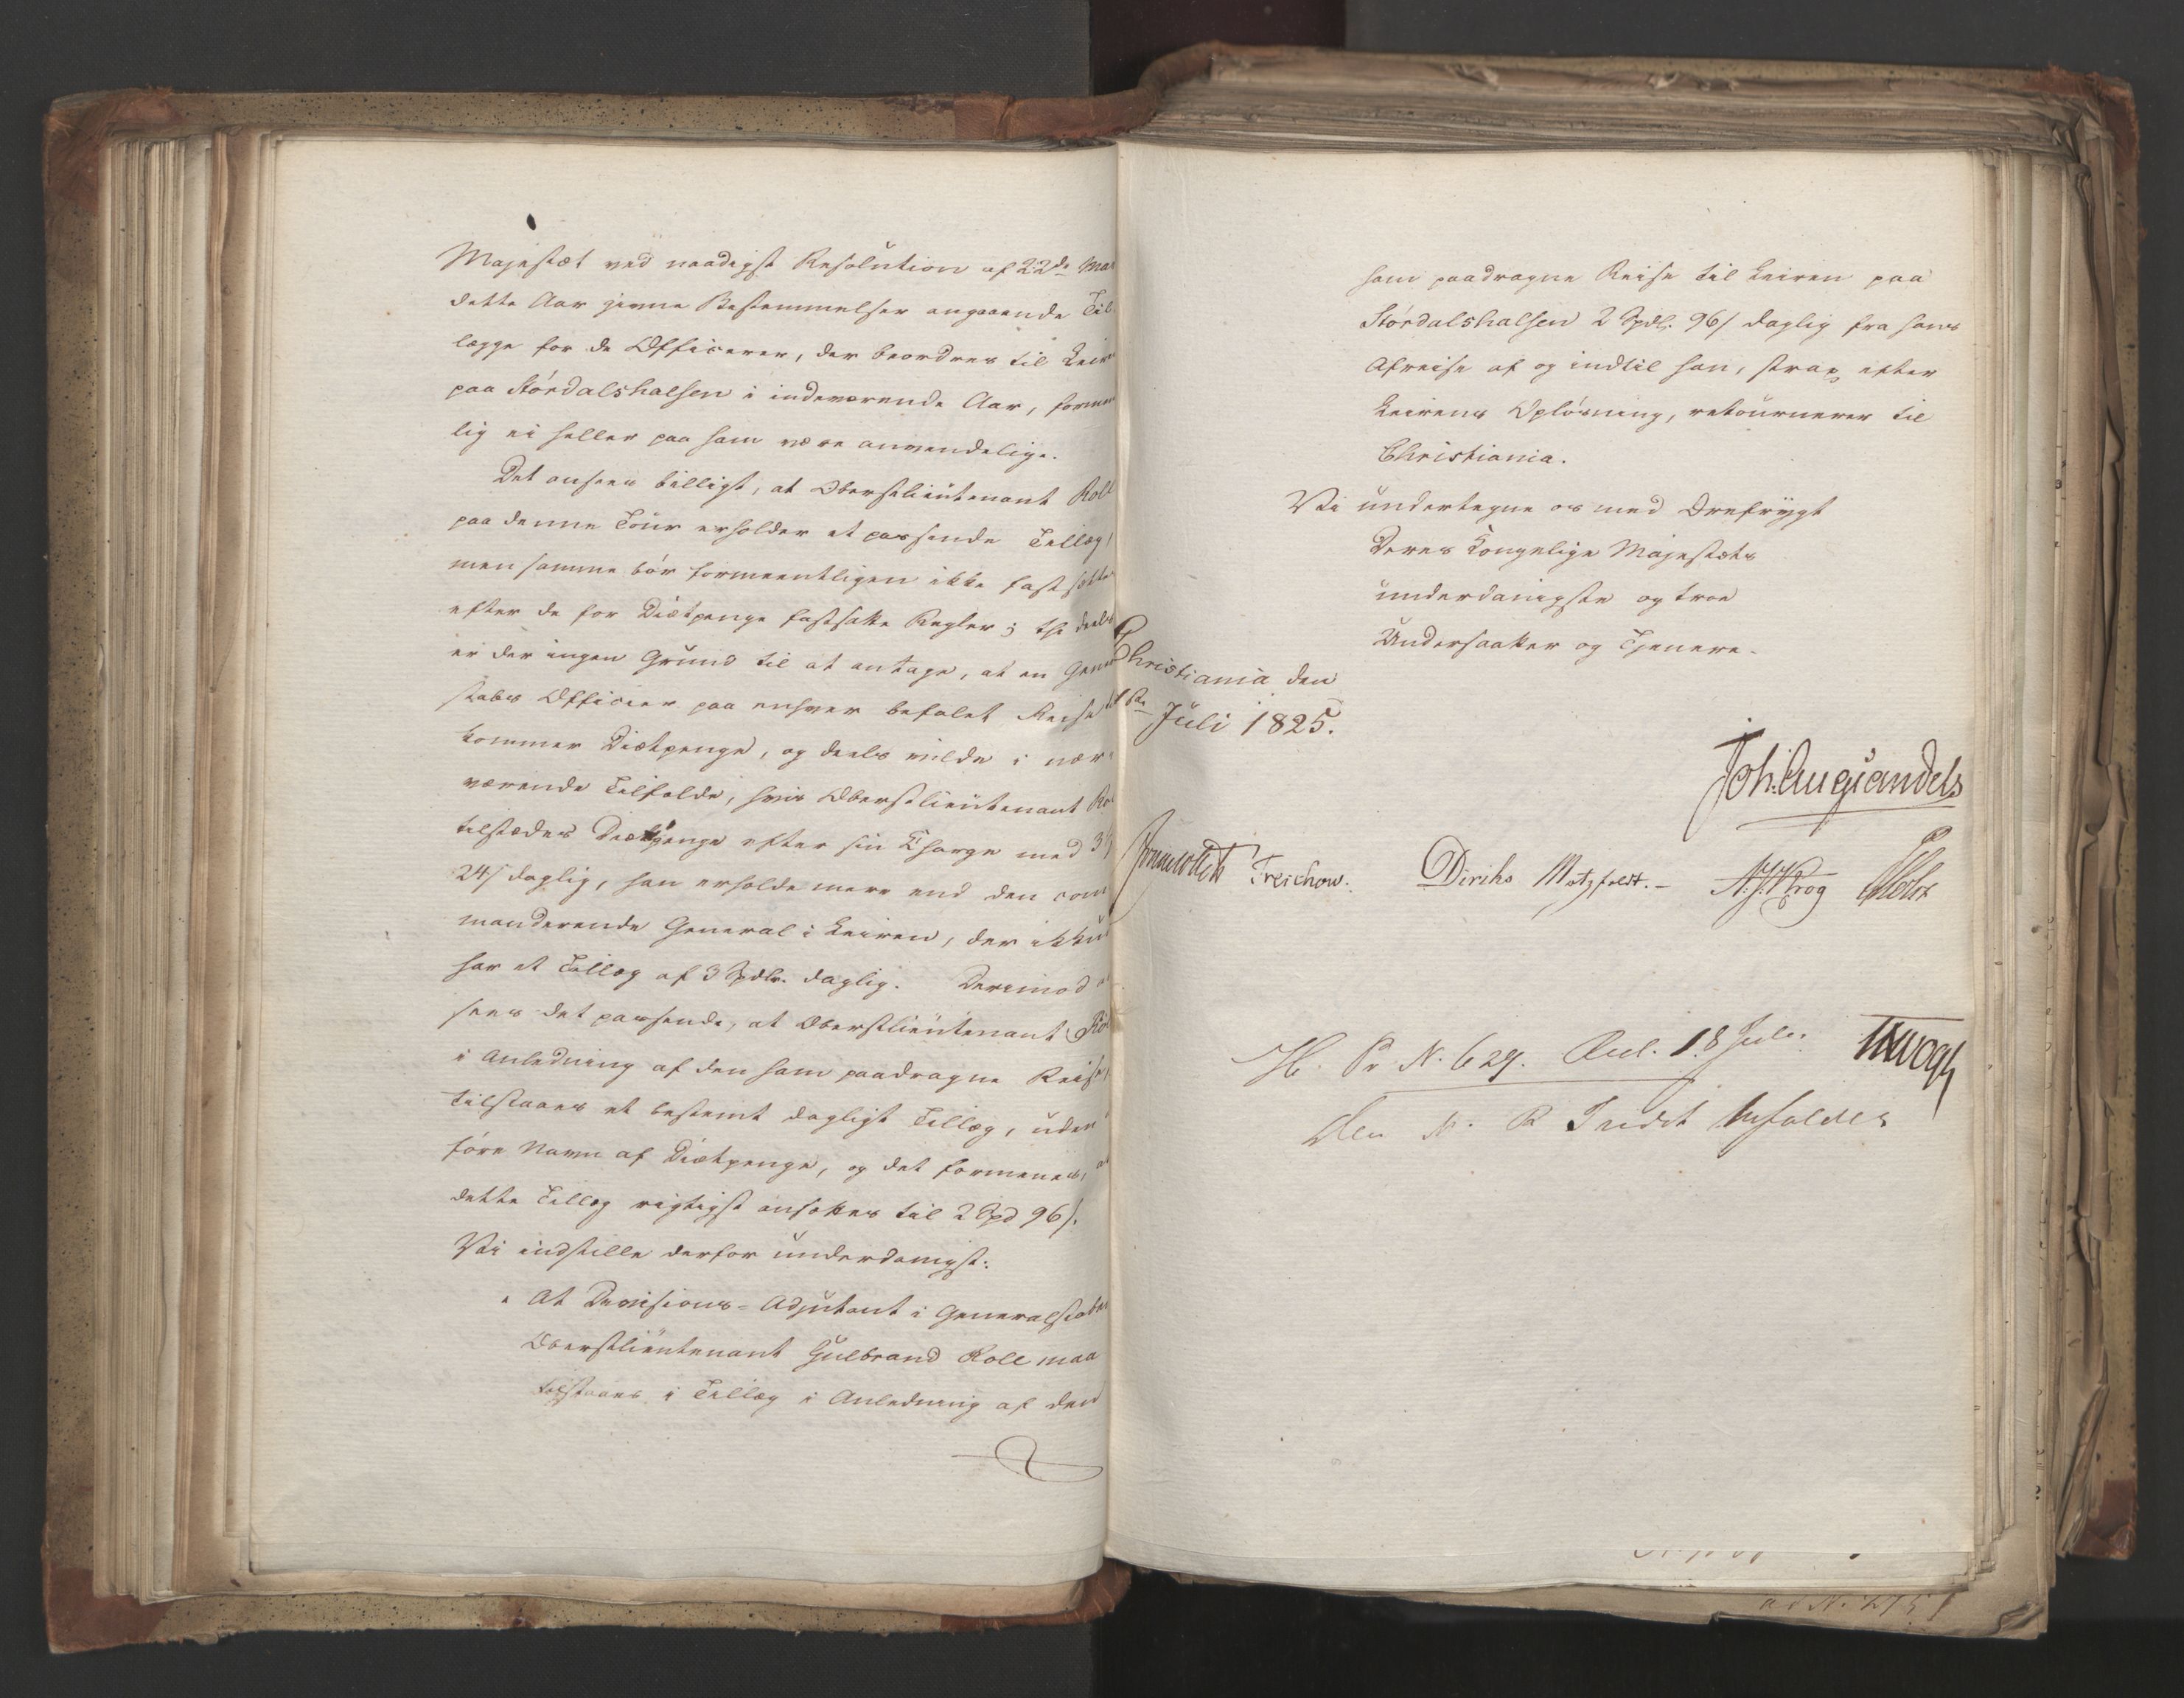 Majestæt ved naadigst Resolution af 22de Mar
dette Aar givne Bestemmelser angaaende Til
lægge for de Officerer, der beordres til Leiren
paa Størdalshalsen i indeværende Aar, formeent
lig ei heller paa ham være anvendelige.
Det ansees billigt, at Oberstlieutenant Roll
paa denne Tour erholder et passende Tillæg,
men samme bør formeentligen ikke fastsættes
efter de for Diætpenge fastsatte Regler; thi deels
er der ingen Grund til at antage, at en General
stabs Officier paa enhver befalet Reise til
kommer Diætpenge, og deels vilde i nær
værende Tilfælde, hvis Oberstlieutenant Ro
tilstædes Diætpenge efter sin Charge med 3
24/ daglig, han erholde mere end den com
manderende General i Leiren, der ikkun
har et Tillæg af 3 Spdlr. daglig. Derimod an
sees det passende, at Oberstlieutenant Rol
i Anledning af den ham paadragne Reise,
tilstaaes et bestemt dagligt Tillæg, uden
føre Navn af Diætpenge, og det formenes, at
dette Tillæg rigtigst ansættes til 2 Spd 96/.
Vi indstille derfor underdanigst:
" At Divisions-Adjutant i Generalstaben
Oberstlieutenant Gulbrand Roll maa
tilstaaes i Tillæg i Anledning af den
ham paadragne Reise til Leiren paa
Størdalshalsen 2 Spdlr. 96/ daglig fra hans
Afreise af og indtil han, strax efter
Leirens Opløsning, retournerer til
Christiania.
Vi undertegne os med Ærefrygt
Deres Kongelige Majestæts
underdanigste og troe
Undersaatter og Tjenere.
Christiania den
Juli 1825.
Joh: Aug Sandels
Sommerhielm Treschow. Diriks Motzfeldt.- A. J. Krog Holst
Pr N. 629. 18 Juli. Vogt
Den N. R Indst bifaldes